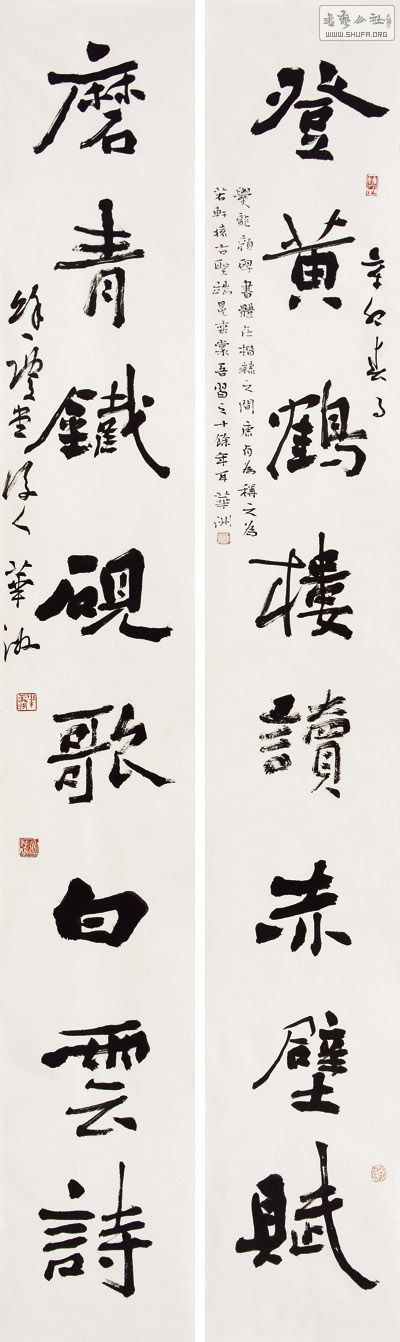 登黄鶴樓讀赤壁賦
辛卯春月
爨龍顔碑書體在楷隸之間康有為稱之為
若軒轅古聖端冕垂裳吾習之十餘年耳華洲
磨青鐵硯歌白雲詩
堂
華
書藝公社
WWW.SHUFA.ORG